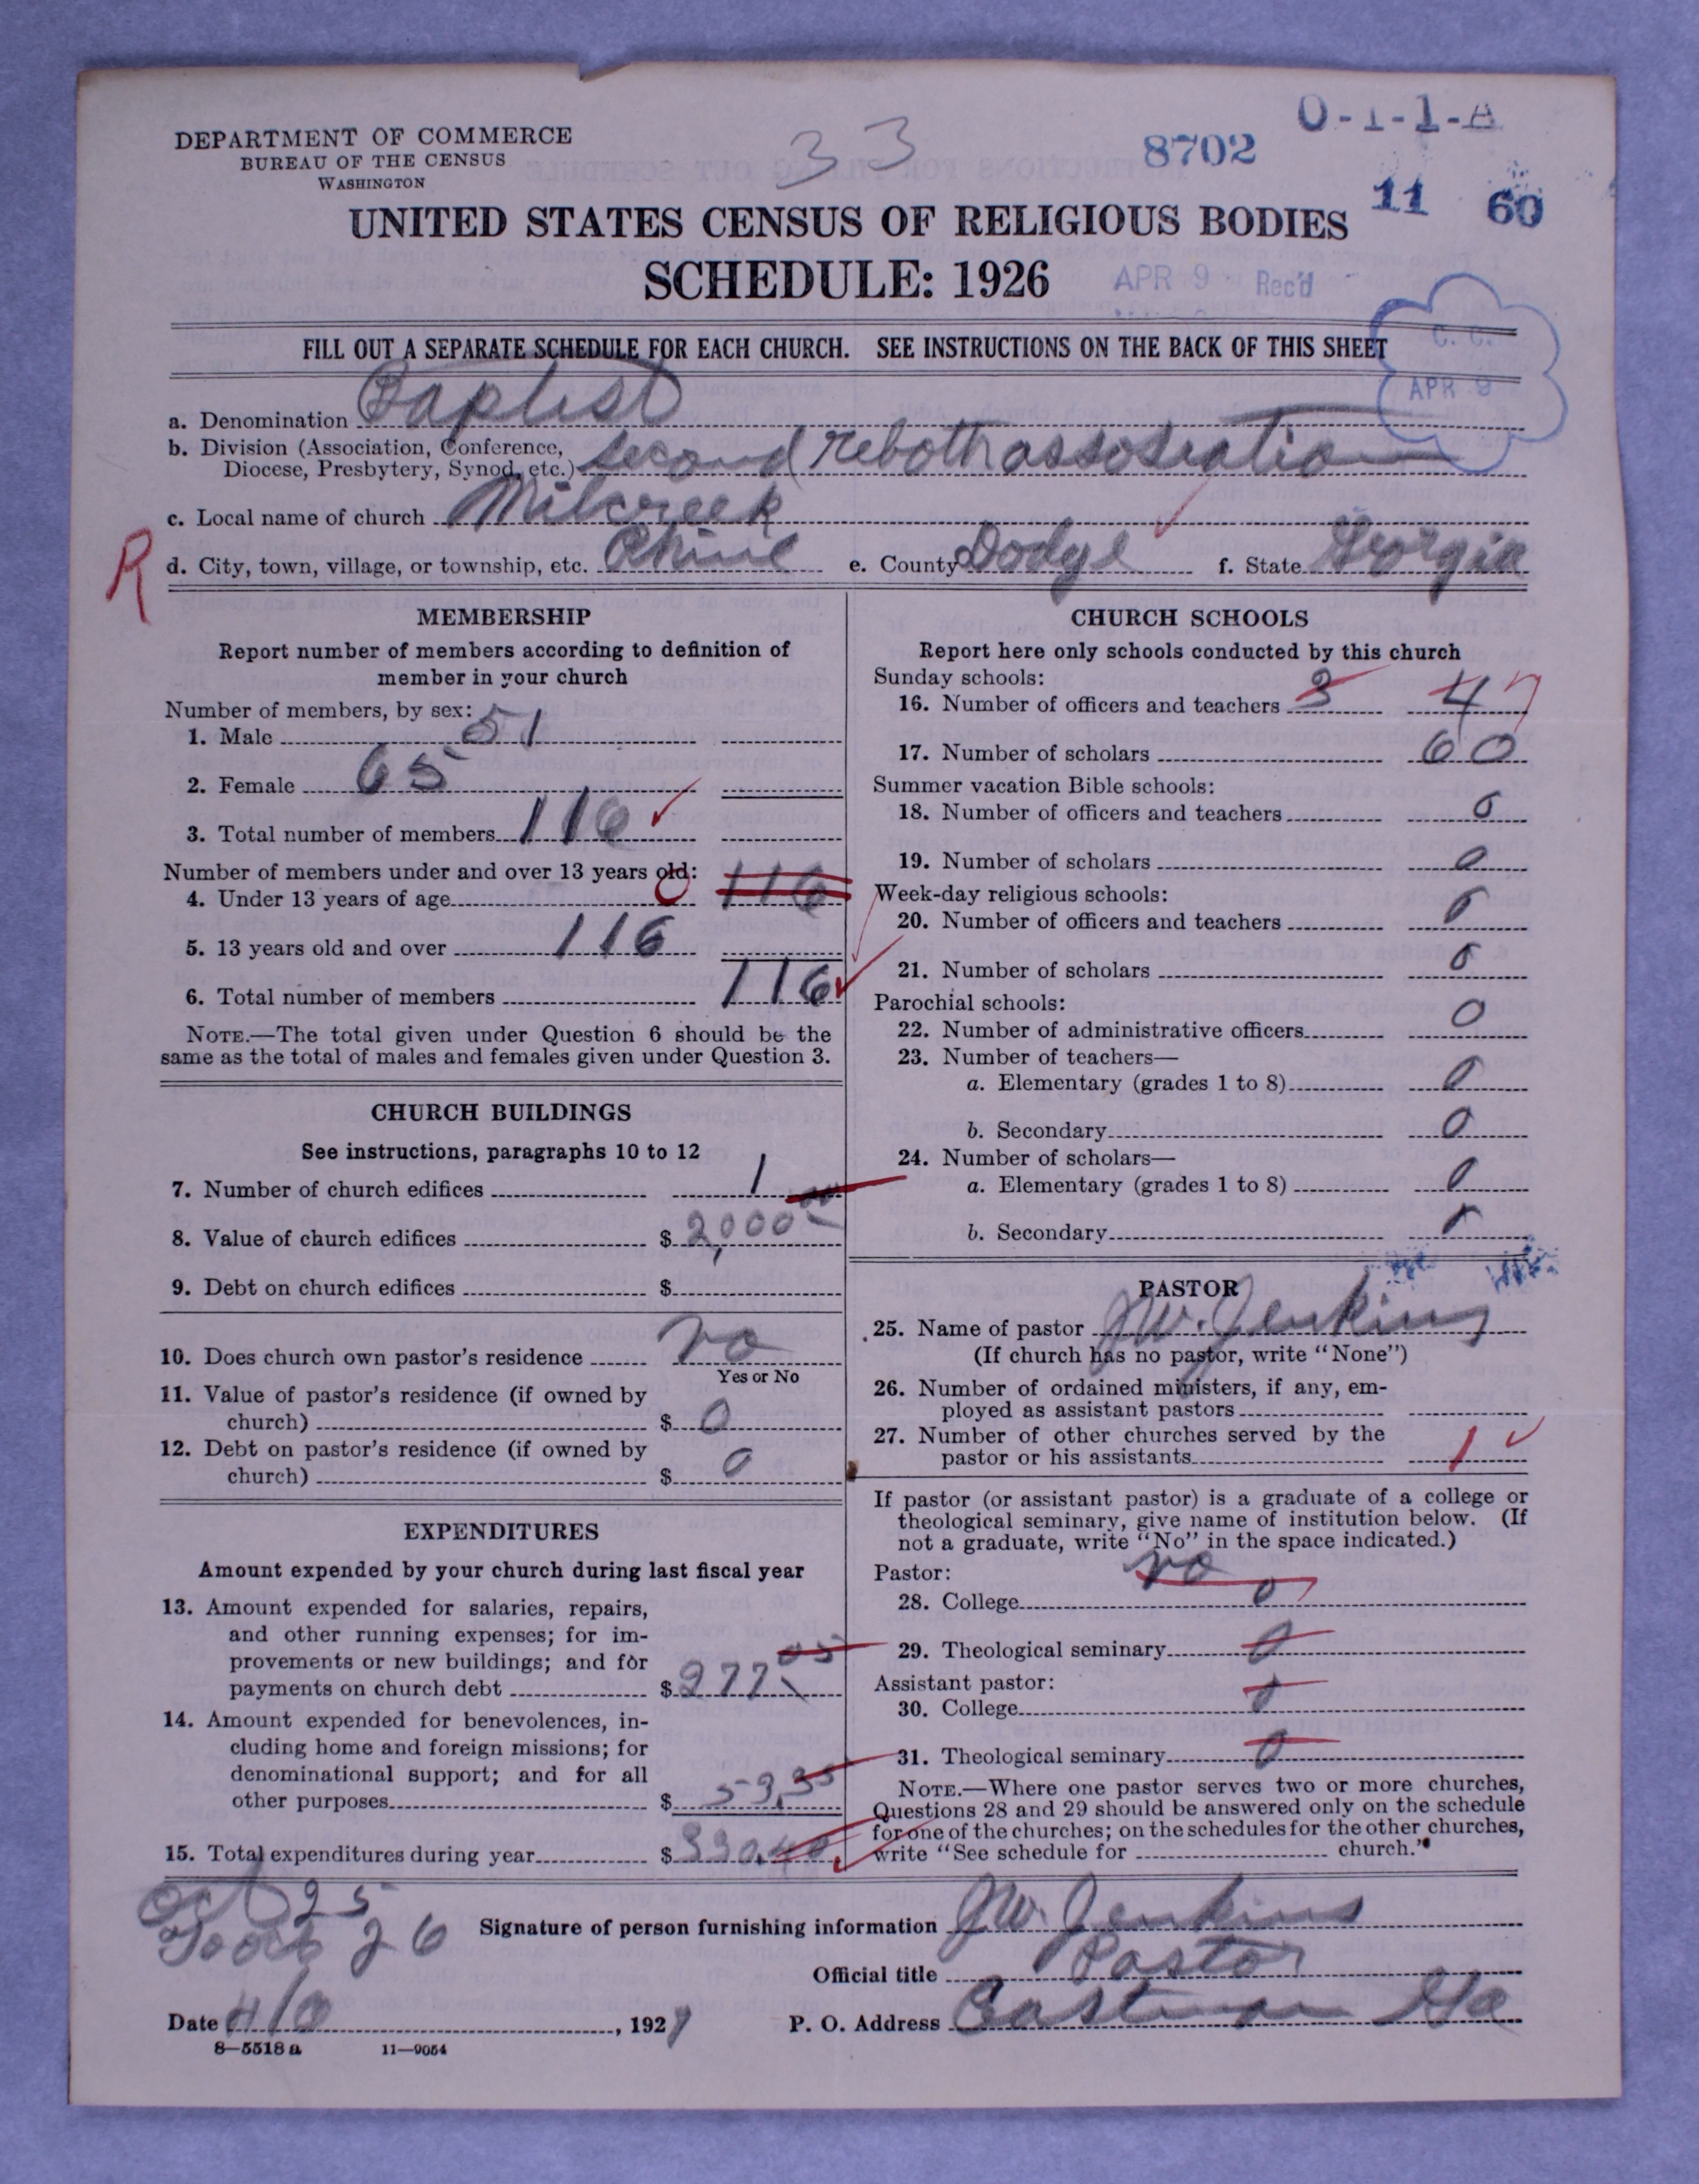 DEPARTMENT OF COMMERCE
BUREAU OF THE CENSUS
WASHINGTON
33
8702
0-1-1-A
11 60
UNITED STATES CENSUS OF RELIGIOUS BODIES
SCHEDULE: 1926
APR 9 Rec'd
FILL OUT A SEPARATE SCHEDULE FOR EACH CHURCH. SEE INSTRUCTIONS ON THE BACK OF THIS SHEET
C. C.
APR 9
a. Denomination Baptist
b. Division (Association, Conference,
Diocese, Presbytery, Synod, etc.) second reboth assosiation
c. Local name of church Milcreek
R
d. City, town, village, or township, etc. e. County Dodge f. State Georgia
MEMBERSHIP
Report number of members according to definition of
member in your church
Number of members, by sex:
1. Male 51
2. Female 65
3. Total number of members 116
Number of members under and over 13 years old:
4. Under 13 years of age 0 116
5. 13 years old and over 116
6. Total number of members 116
NOTE.—The total given under Question 6 should be the
same as the total of males and females given under Question 3.
CHURCH BUILDINGS
See instructions, paragraphs 10 to 12
7. Number of church edifices 1
8. Value of church edifices $ 2,000 00
9. Debt on church edifices $
10. Does church own pastor's residence no
Yes or No
11. Value of pastor's residence (if owned by
church) $ 0
12. Debt on pastor's residence (if owned by
church) $ 0
EXPENDITURES
Amount expended by your church during last fiscal year
13. Amount expended for salaries, repairs,
and other running expenses; for im-
provements or new buildings; and for
payments on church debt $ 277 05
14. Amount expended for benevolences, in-
cluding home and foreign missions; for
denominational support; and for all
other purposes $ 53.35
15. Total expenditures during year $ 330.40
CHURCH SCHOOLS
Report here only schools conducted by this church
Sunday schools:
16. Number of officers and teachers 3 4 7
17. Number of scholars 60
Summer vacation Bible schools:
18. Number of officers and teachers 0
19. Number of scholars 0
Week-day religious schools:
20. Number of officers and teachers 0
21. Number of scholars 0
Parochial schools:
22. Number of administrative officers 0
23. Number of teachers—
a. Elementary (grades 1 to 8) 0
b. Secondary 0
24. Number of scholars—
a. Elementary (grades 1 to 8) 0
b. Secondary 0
PASTOR
25. Name of pastor J.W. Jenkins
(If church has no pastor, write "None")
26. Number of ordained ministers, if any, em-
ployed as assistant pastors
27. Number of other churches served by the
pastor or his assistants 1
If pastor (or assistant pastor) is a graduate of a college or
theological seminary, give name of institution below. (If
not a graduate, write "No" in the space indicated.)
Pastor: no
28. College 0
29. Theological seminary 0
Assistant pastor:
30. College 0
31. Theological seminary 0
NOTE.—Where one pastor serves two or more churches,
Questions 28 and 29 should be answered only on the schedule
for one of the churches; on the schedules for the other churches,
write "See schedule for church."
Oct 25
26
Signature of person furnishing information J.W. Jenkins
Official title Pastor
Date , 192
P. O. Address Eastman Ga
8—5518 a 11—9054